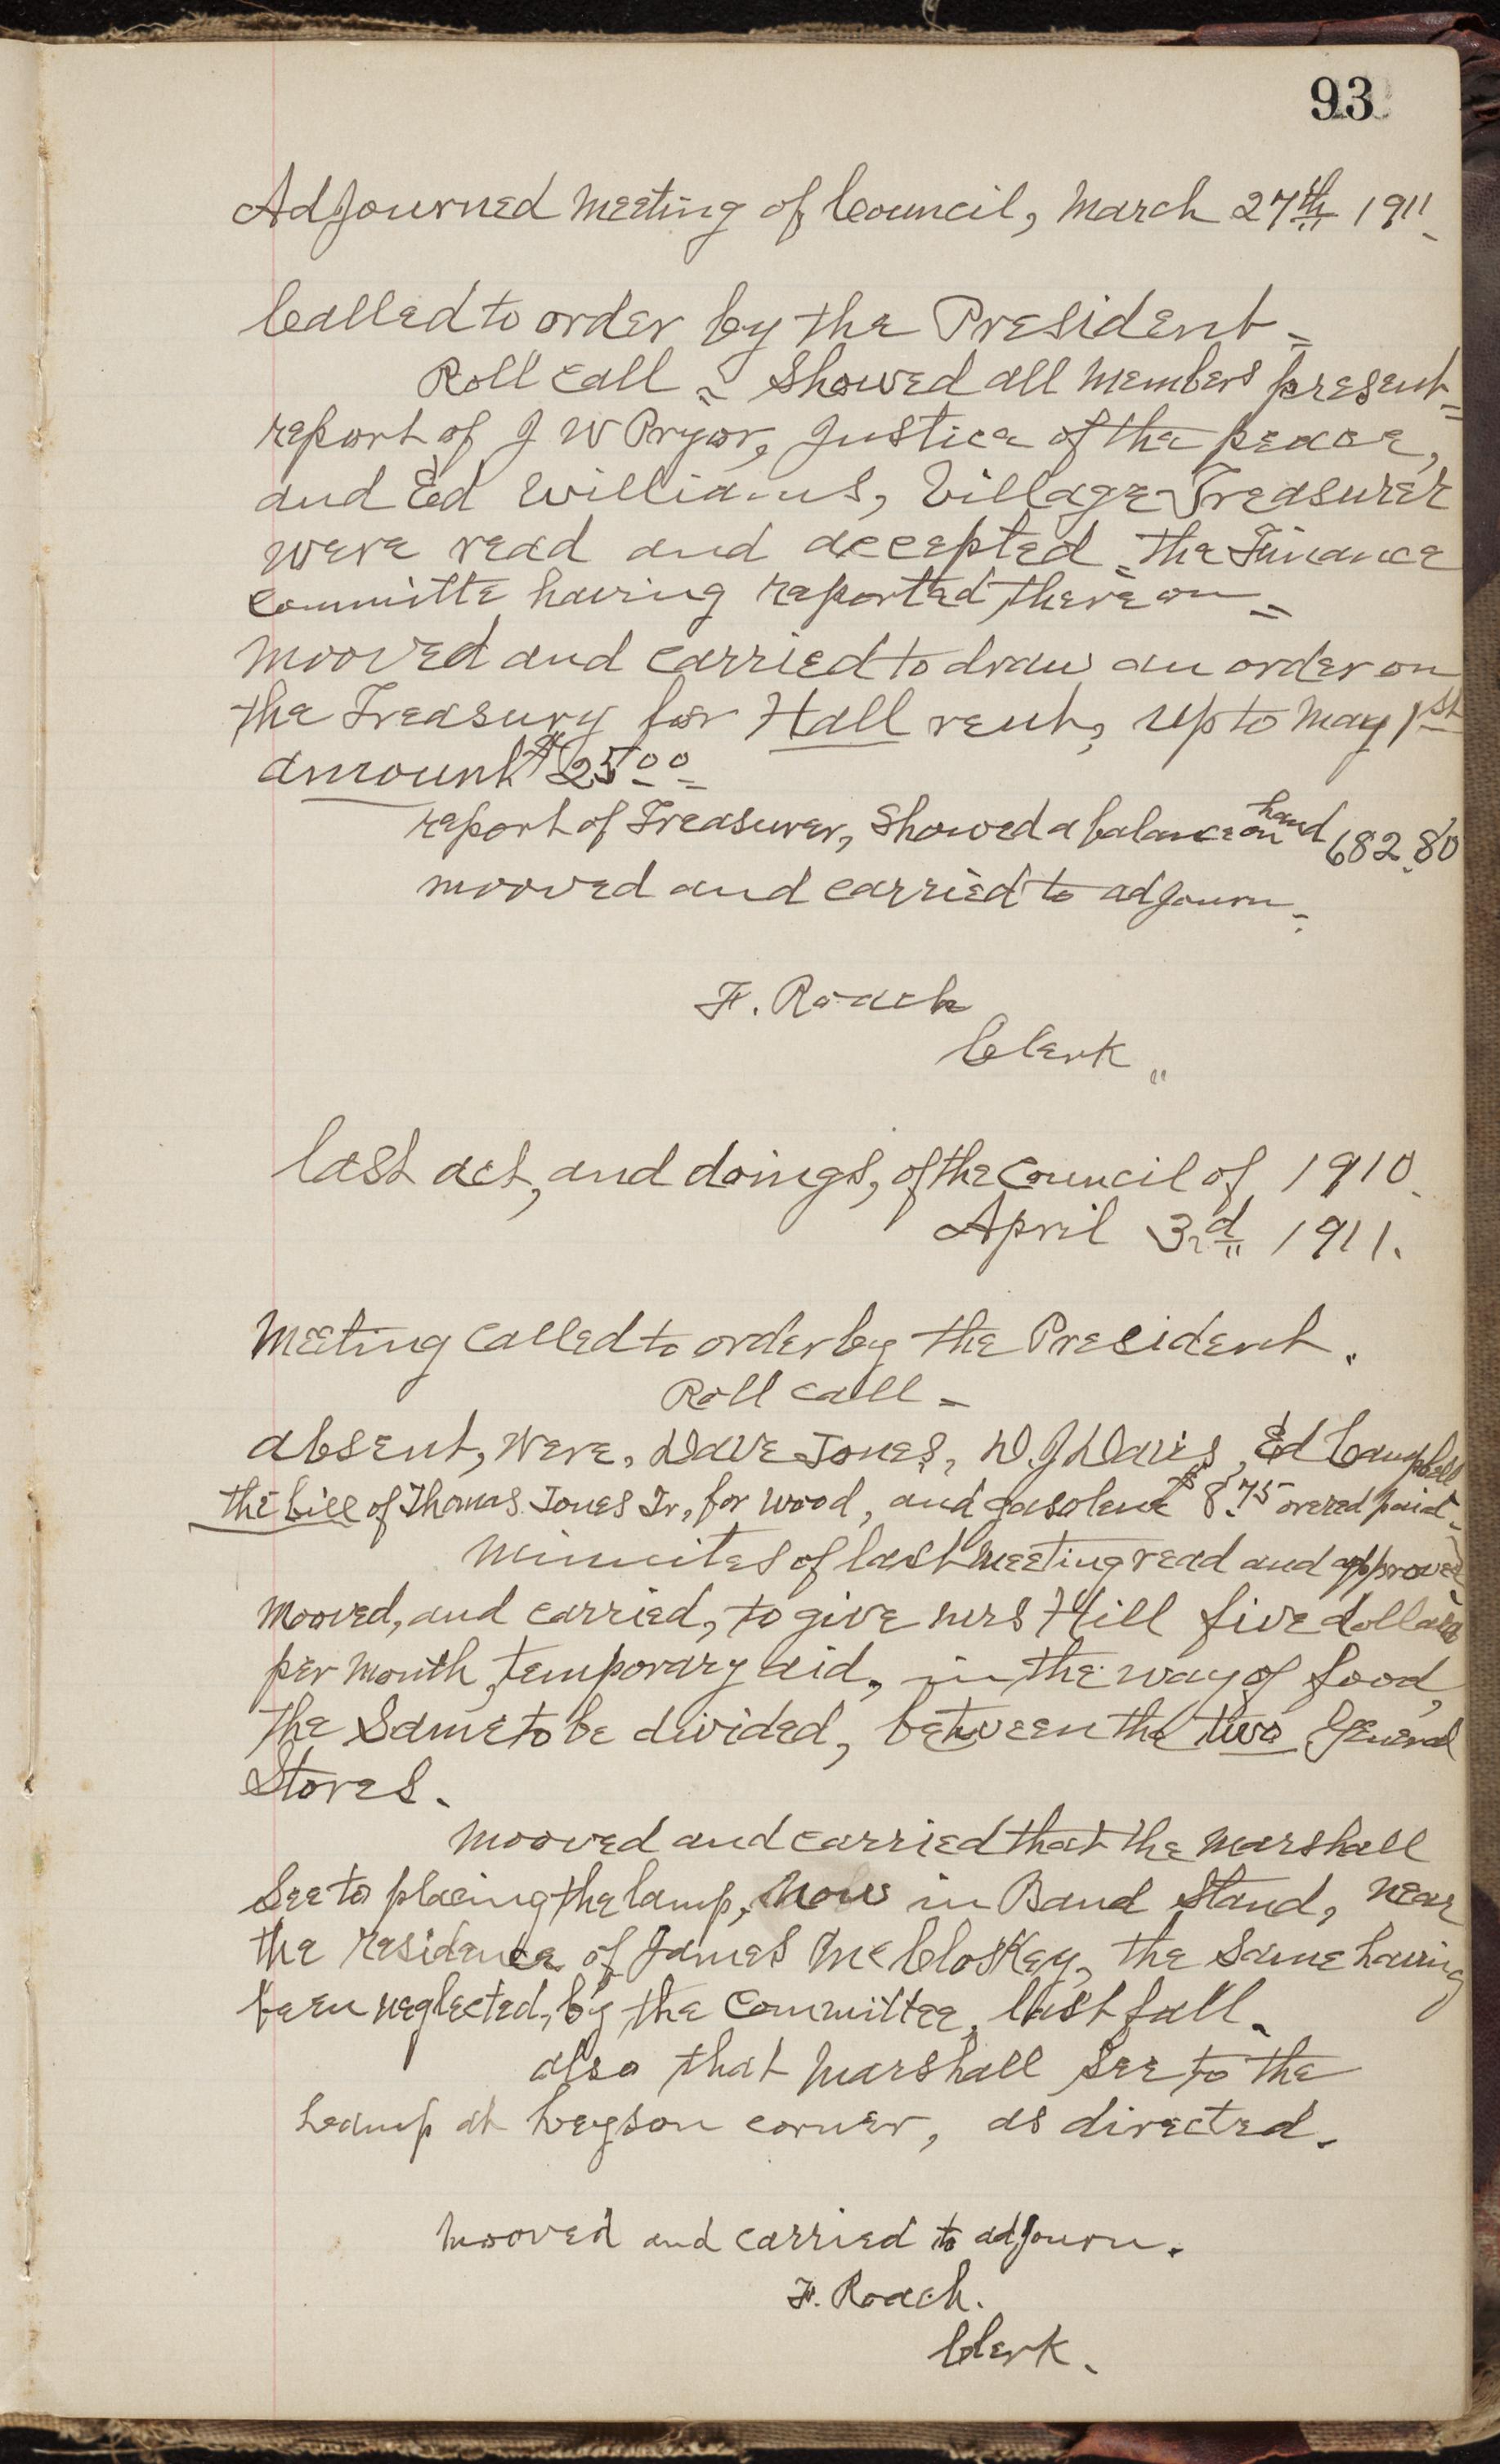 93
Adjourned meeting of Council, March 27th 1911
Called to order by the President =
Roll call = Showed all members present =
report of J W Pryor, Justice of the peace,
and Ed Williams, Village Treasurer
were read and accepted = the Finance
committe having reported there on =
mooved and carried to draw an order on
the Treasury for Hall rent, up to May 1st
amount $25.00
report of Treasurer, Showed a balance on hand 682.80
mooved and carried to adjourn =
F. Roach
Clerk "
last act, and doings, of the council of 1910.
April 3rd 1911.
Meeting called to order by the President.
Roll call -
absent, were, Dave Jones, D. J Davis, Ed Campbell
the bill of Thomas Jones Jr, for wood, and gasolene $8.75 ored paid -
Minuites of last meeting read and approved
Mooved, and carried, to give mrs Hill five dollars
per month, temporary aid, in the way of food,
the Same to be divided, between the two General
Stores.
mooved and carried that the marshall
See to placing the lamp, Now in Band Stand, near
the residence of James McCloskey, the same having
been neglected, by the committee, last fall.
also that Marshall See to the
Lamp at Legson corner, as directed.
mooved and carried to adjourn.
F. Roach.
Clerk.